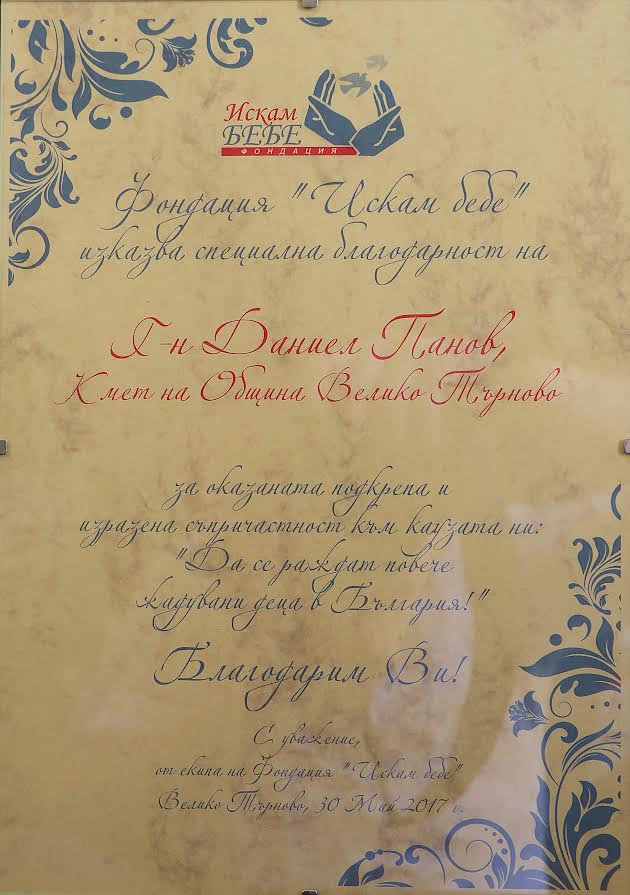 Искам
БЕБЕ
ФОНДАЦИЯ
Фондация "Искам бебе"
изказва специална благодарност на
Г-н Даниел Панов,
Кмет на Община Велико Търново
за оказаната подкрепа и
изразена съпричастност към каузата ни:
"Да се раждат повече
жадувани деца в България!"
Благодарим Ви!
С уважение,
от екипа на Фондация "Искам бебе"
Велико Търново, 30 Май 2017 г.